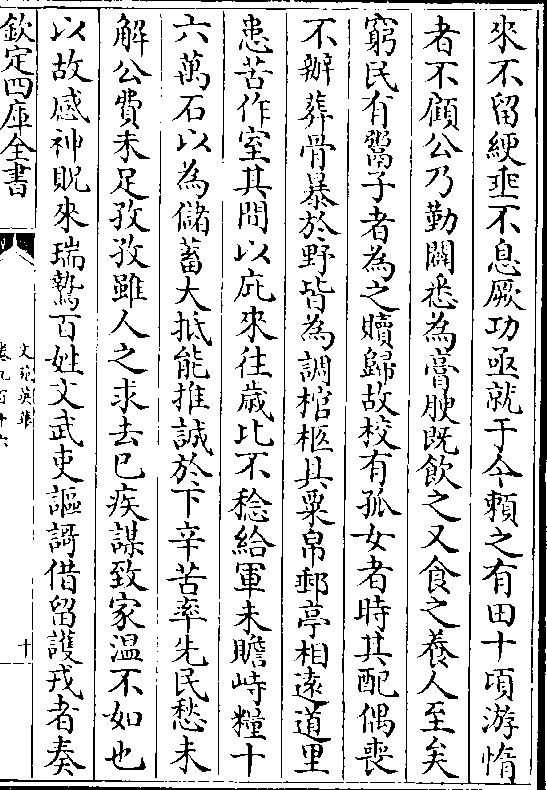 來不留綆垂不息厥功亟就于今賴之有田十項游惰
者不顧公乃勤闢悉為膏腴既飲之又食之養人至矣
窮民有鬻子者為之贖歸故校有孤女者時其配偶喪
不辦葬骨暴於野皆為調棺柩具粟帛郵亭相遠道里
患苦作室其間以庇來往歲比不稔給軍未贍峙糧十
六萬石以為儲蓄大抵能推誠於下辛苦率先民愁未
解公費未足孜孜雖人之求去已疾謀致家温不如也
以故感神貺來瑞鷙百姓文武吏謳謌借留護戎者奏
欽定四庫全書
文苑英華
卷九百十六
十